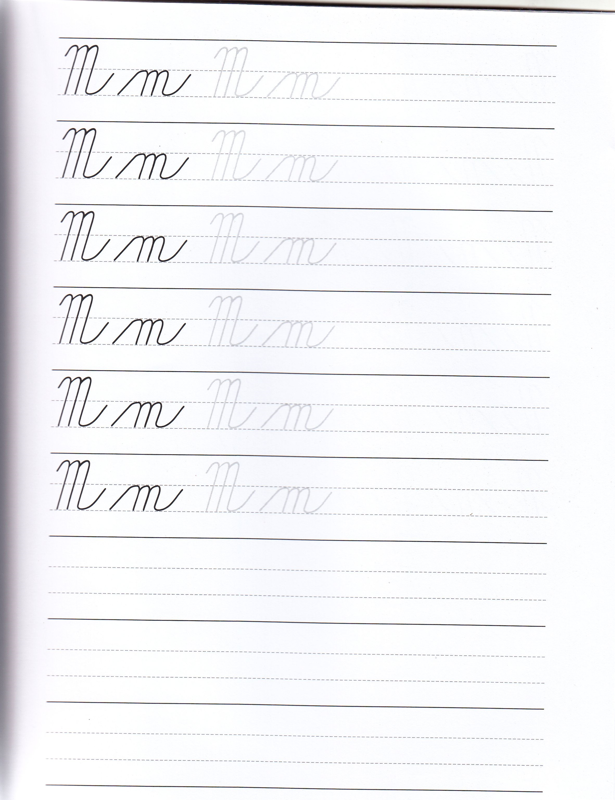 M m M m
M m M m
M m M m
M m M m
M m M m
M m M m